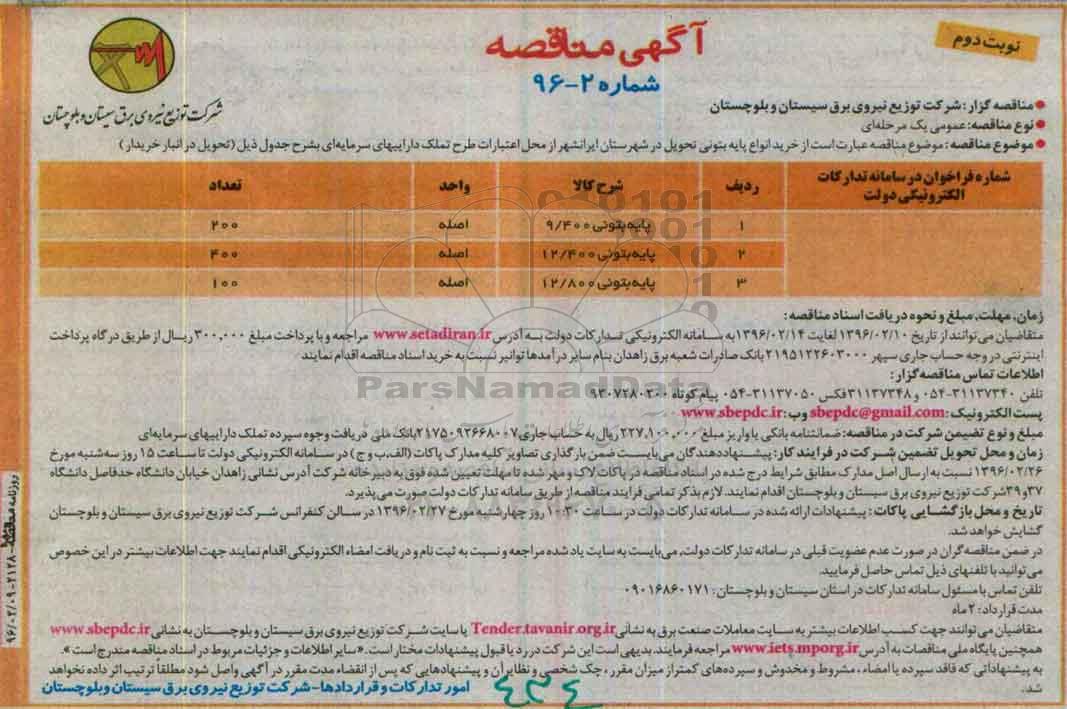 نوبت دوم
آگهی مناقصه
شماره ۲-۹۶
شرکت توزیع نیروی برق سیستان و بلوچستان
● مناقصه گزار: شرکت توزیع نیروی برق سیستان و بلوچستان
● نوع مناقصه: عمومی یک مرحله‌ای
● موضوع مناقصه: موضوع مناقصه عبارت است از خرید انواع پایه بتونی تحویل در شهرستان ایرانشهر از محل اعتبارات طرح تملک داراییهای سرمایه‌ای بشرح جدول ذیل (تحویل در انبار خریدار)
شماره فراخوان در سامانه تدارکات الکترونیکی دولت ردیف شرح کالا واحد تعداد
۱ پایه بتونی ۹/۴۰۰ اصله ۲۰۰
۲ پایه بتونی ۱۲/۴۰۰ اصله ۴۰۰
۳ پایه بتونی ۱۲/۸۰۰ اصله ۱۰۰
زمان، مهلت، مبلغ و نحوه دریافت اسناد مناقصه:
متقاضیان می‌توانند از تاریخ ۱۳۹۶/۰۲/۱۰ لغایت ۱۳۹۶/۰۲/۱۴ به سامانه الکترونیکی تدارکات دولت به آدرس www.setadiran.ir مراجعه و با پرداخت مبلغ ۳۰۰,۰۰۰ ریال از طریق درگاه پرداخت
اینترنتی در وجه حساب جاری سپهر ۲۱۹۵۱۲۲۶۰۳۰۰۰ بانک صادرات شعبه برق زاهدان بنام سایر درآمدها توانیر نسبت به خرید اسناد مناقصه اقدام نمایند
اطلاعات تماس مناقصه گزار:
تلفن ۳۱۱۳۷۳۴۰-۰۵۴ و ۳۱۱۳۷۳۴۸ فکس ۳۱۱۳۷۰۵۰-۰۵۴ پیام کوتاه ۹۳۰۷۲۸۰۲۰۰
پست الکترونیک: sbepdc@gmail.com وب: www.sbepdc.ir
مبلغ و نوع تضمین شرکت در مناقصه: ضمانتنامه بانکی یا واریز مبلغ ۲۲۷,۱۰۰,۰۰۰ ریال به حساب جاری ۲۱۷۵۰۹۳۶۶۸۰۰۷ بانک ملی دریافت وجوه سپرده تملک داراییهای سرمایه‌ای
زمان و محل تحویل تضمین شرکت در فرایند کار: پیشنهاددهندگان می‌بایست ضمن بارگذاری تصاویر کلیه مدارک پاکات (الف، ب و ج) در سامانه الکترونیکی دولت تا ساعت ۱۵ روز سه‌شنبه مورخ
۱۳۹۶/۰۲/۲۶ نسبت به ارسال اصل مدارک مطابق شرایط درج شده در اسناد مناقصه در پاکات لاک و مهر شده تا مهلت تعیین شده فوق به دبیرخانه شرکت آدرس نشانی زاهدان خیابان دانشگاه حدفاصل دانشگاه
۳۷ و ۳۹ شرکت توزیع نیروی برق سیستان و بلوچستان اقدام نمایند. لازم بذکر تمامی فرایند مناقصه از طریق سامانه تدارکات دولت صورت می‌پذیرد.
تاریخ و محل بازگشایی پاکات: پیشنهادات ارائه شده در سامانه تدارکات دولت در ساعت ۱۰:۳۰ روز چهارشنبه مورخ ۱۳۹۶/۰۲/۲۷ در سالن کنفرانس شرکت توزیع نیروی برق سیستان و بلوچستان
گشایش خواهد شد.
در ضمن مناقصه گران در صورت عدم عضویت قبلی در سامانه تدارکات دولت، می‌بایست به سایت یاد شده مراجعه و نسبت به ثبت نام و دریافت امضاء الکترونیکی اقدام نمایند جهت اطلاعات بیشتر در این خصوص
می‌توانید با تلفنهای ذیل تماس حاصل فرمایید.
تلفن تماس با مسئول سامانه تدارکات در استان سیستان و بلوچستان: ۰۹۰۱۶۸۶۰۱۷۱
مدت قرارداد: ۲ ماه
متقاضیان می‌توانند جهت کسب اطلاعات بیشتر به سایت معاملات صنعت برق به نشانی Tender.tavanir.org.ir یا سایت شرکت توزیع نیروی برق سیستان و بلوچستان به نشانی www.sbepdc.ir
همچنین پایگاه ملی مناقصات به آدرس www.iets.mporg.ir مراجعه فرمایند. بدیهی است این شرکت در رد یا قبول پیشنهادات مختار است. «سایر اطلاعات و جزئیات مربوط در اسناد مناقصه مندرج است».
به پیشنهاداتی که فاقد سپرده یا امضاء، مشروط و مخدوش و سپرده‌های کمتر از میزان مقرر، چک شخصی و نظایر آن و پیشنهادهایی که پس از انقضاء مدت مقرر در آگهی واصل شود مطلقاً ترتیب اثر داده نخواهد
شد.
امور تدارکات و قراردادها - شرکت توزیع نیروی برق سیستان و بلوچستان
۴۳۴
روزنامه مناقصه - ۲۱۲۸ - ۹۶/۰۲/۰۹
ParsNamadData